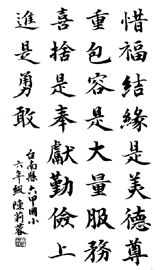 惜福結緣是美德尊
重包容是大量服務
喜捨是奉獻勤儉上
進是勇敢
台南縣六甲國小
六年級陳莉蓉